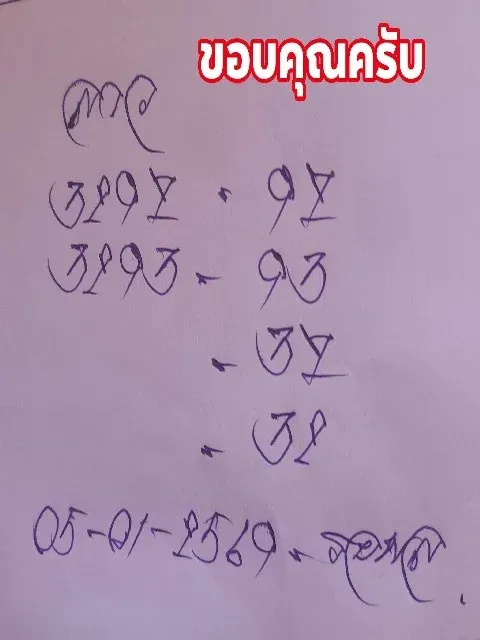 ขอบคุณครับ
ลาว
3197 - 97
3193 - 93
- 37
- 31
05-01-2569 -